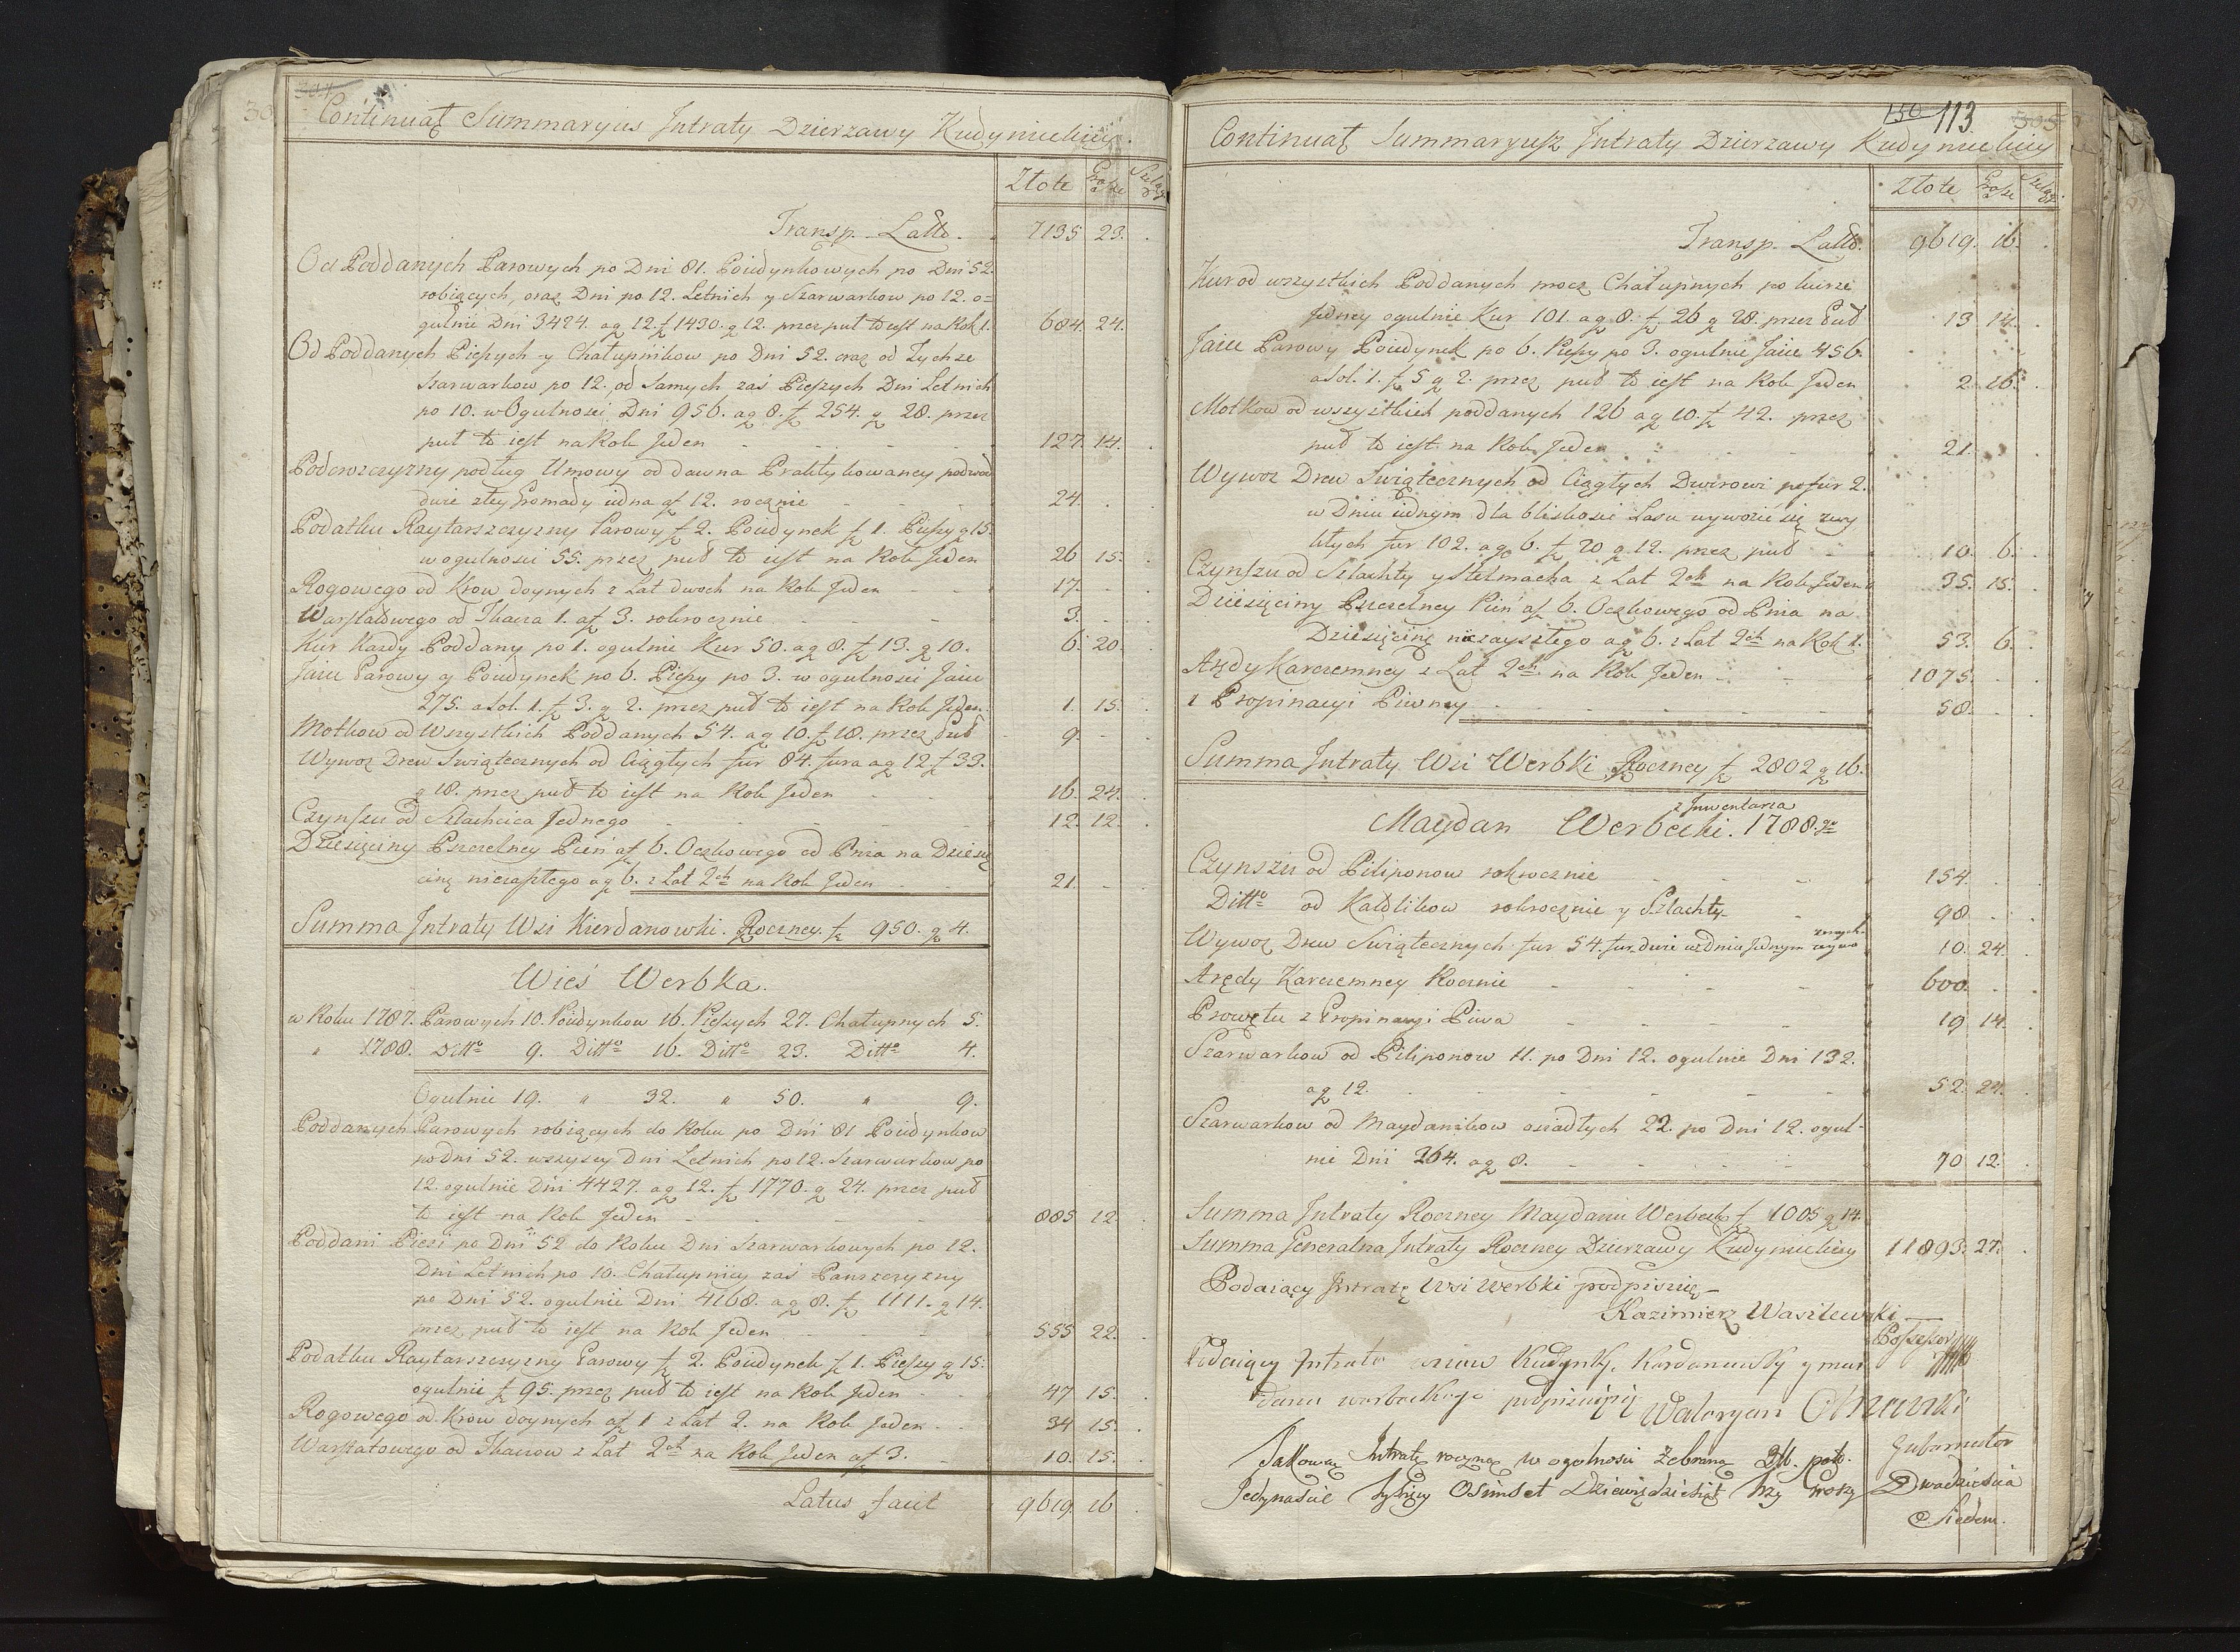 304
Continuat Summaryus Intraty Dzierzawy Kudynieckiey.
Złote Grosze Szelągi
Transp. Latto. 7135 23.
Od Poddanych Parowych po Dni 81. Poiedynkowych po Dni 52.
robiących, oraz Dni po 12. Letnich y Szarwarkow po 12. o=
gulnie Dni 3424. a g 12. f 1430. g 12. przez puł to iest na Rok 1. 684. 24.
Od Poddanych Pieszych y Chałupnikow po Dni 52. oraz od Tychze
Szarwarkow po 12. od Samych zaś Pieszych Dni Letnich
po 10. w Ogulnosci Dni 956. a g 8. f 254. g 28. przez
puł to iest na Rok Jeden 127. 14.
podług Umowy od dawna Praktykowaney podwod
dwie z tey Gromady iedna af 12. rocznie 24.
Podatku Raytarszczyzny Parowy f 2. Poiedynek f 1. Pieszy g 15.
w ogulnosci 55. przez puł to iest na Rok Jeden 26 15.
Rogowego od Krow doynych z Lat dwoch na Rok Jeden 17.
Warsztatowego od Tkacza 1. af 3. rokrocznie 3.
Kur Kazdy Poddany po 1. ogulnie Kur 50. a g 8. f 13. g 10. 6. 20.
Jaiec Parowy y Poiedynek po 6. Pieszy po 3. w ogulnosci Jaiec
275. a Sol. 1. f 3. g 2. przez puł to iest na Rok Jeden. 1. 15.
Motkow od Wszystkich Poddanych 54. a g 10. f 18. przez puł 9.
Wywoz Drew Swiątecznych od Ciągłych fur 84. fura a g 12 f 33.
g 18. przez puł to iest na Rok Jeden 16. 24.
Czynszu od Szlachcica Jednego 12. 12.
Dziesięciny Pszczelney Pień af 6. Oczkowego od Pnia na Dziesię
cinę nieraszłego a g 6. z Lat 2ch na Rok Jeden 21.
Summa Intraty Wsi Kierdanowki. Roczney. f 950. g 4.
Wieś Werbka.
w Roku 1787. Parowych 10. Poiedynkow 16. Pieszych 27. Chałupnych 5.
" 1788. Ditto 9. Ditto 16. Ditto 23. Ditto 4.
Ogulnie 19. " 32. " 50. " 9.
Poddanych Parowych robiących do Roku po Dni 81 Poiedynkow
po Dni 52. wszyscy Dni Letnich po 12. Szarwarkow po
12. ogulnie Dni 4427. a g 12. f 1770. g 24. przez puł
to iest na Rok Jeden 885 12
Poddani Piesi po Dni 52 do Roku Dni Szarwarkowych po 12.
Dni Letnich po 10. Chałupnicy zaś Panszczyzny
po Dni 52. ogulnie Dni 4168. a g 8. f 1111. g 14.
przez puł to iest na Rok Jeden 555 22.
Podatku Raytarszczyzny Parowy f 2. Poiedynek f 1. Pieszy g 15.
ogulnie f 95. przez puł to iest na Rok Jeden 47 15.
Rogowego od Krow doynych af 1 z Lat 2. na Rok Jeden 34 15.
Warsztatowego od Tkaczow z Lat 2ch na Rok Jeden af 3. 10. 15.
Latus facit 9619. 16
150 113 305
Continuat Summaryusz Intraty Dzierzawy Kudynieckiey
Złote Grosze Szelągi
Transp. Latto. 9619. 16.
Kur od wszystkich Poddanych procz Chałupnych po kurze
Jedney ogulnie Kur 101. a g 8. f 26 g 28. przez puł 13 14.
Jaiec Parowy Poiedynek po 6. Pieszy po 3. ogulnie Jaiec 456.
a Sol. 1. f 5 g 2. przez puł to iest na Rok Jeden 2. 16.
Motkow od wszystkich poddanych 126 a g 10. f 42. przez
puł to iest na Rok Jeden 21.
Wywoz Drew Swiątecznych od Ciągłych Dworowi po fur 2.
w Dniu iednym dla bliskosci Lasu wywozić się zwy
kłych fur 102. a g 6. f 20 g 12. przez puł 10. 6.
Czynszu od Szlachty y Stelmacha z Lat 2ch na Rok Jeden 35. 15.
Dziesięciny Pszczelney Pień af 6. Oczkowego od Pnia na
Dziesięcinę niezayszłego a g 6. z Lat 2ch na Rok 1. 53. 6.
Arędy Karczemney z Lat 2ch na Rok Jeden 1075.
z Propinacyi Piwney 58.
Summa Intraty Wsi Werbki Roczney f 2802 g 16.
Maydan Werbecki. z Inwentarza 1788.go
Czynszu od Piliponow rokrocznie 154.
Ditto od Katolikow rokrocznie y Szlachty 98.
Wywoz Drew Swiątecznych fur 54. fur dwie w dniu Jednym 10. 24.
Arędy Karczemney Rocznie 600.
Prowętu z Propinacyi Piwa 19 14.
Szarwarkow od Piliponow 11. po Dni 12. ogulnie Dni 132.
a g 12. 52. 24.
Szarwarkow od Maydanikow osiadłych 22. po Dni 12. ogul-
nie Dni 264. a g 8. 70 12.
Summa Intraty Roczney Maydanu Werbeck f 1005 g 14.
Summa Generalna Intraty Roczney Dzierzawy Kudynieckiey 11893. 27.
Podaiący Intratę Wsi Werbki podpisuię
Kazimierz Wasilewski
Possessor
Podaiący Intrate
podpisuię Waleryan
Gubernator
Takowa Intratę roczną w ogolnosci Zebraną Złł. pol.
Jedynascie tysięcy Osimset Dziewięćdziesiąt trzy groszy Dwadziescia
Siedem.